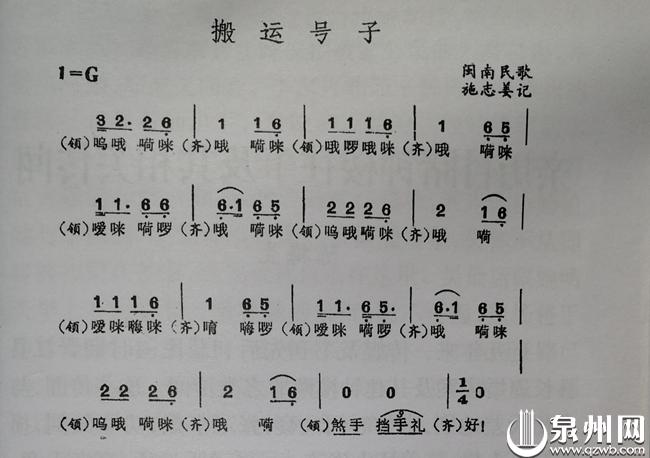 搬运号子
1=G
闽南民歌
施志姜记
3 2· 2 6 | 1 1 6 | 1 1 1 6 | 1 6 5 |
(领)呜哦 嗬咪 (齐)哦 嗬咪 (领)哦啰哦咪 (齐)哦 嗬咪
1 1· 6 5 | 6·1 6 5 | 2 2 2 6 | 2 1 6 |
(领)嗳咪 嗬啰 (齐)哦 嗬咪 (领)呜哦嗬咪 (齐)哦 嗬
1 1 1 6 | 1 6 5 | 1 1· 6 5 | 6·1 6 5 |
(领)嗳咪嗨咪 (齐)唷 嗨啰 (领)嗳咪 嗬啰 (齐)哦 嗬咪
2 2 2 6 | 2 1 6 | 0 0 | 1/4 0
(领)呜哦 嗬咪 (齐)哦 嗬 (领)煞手 挡手礼 (齐)好!
泉州网
www.qzwb.com